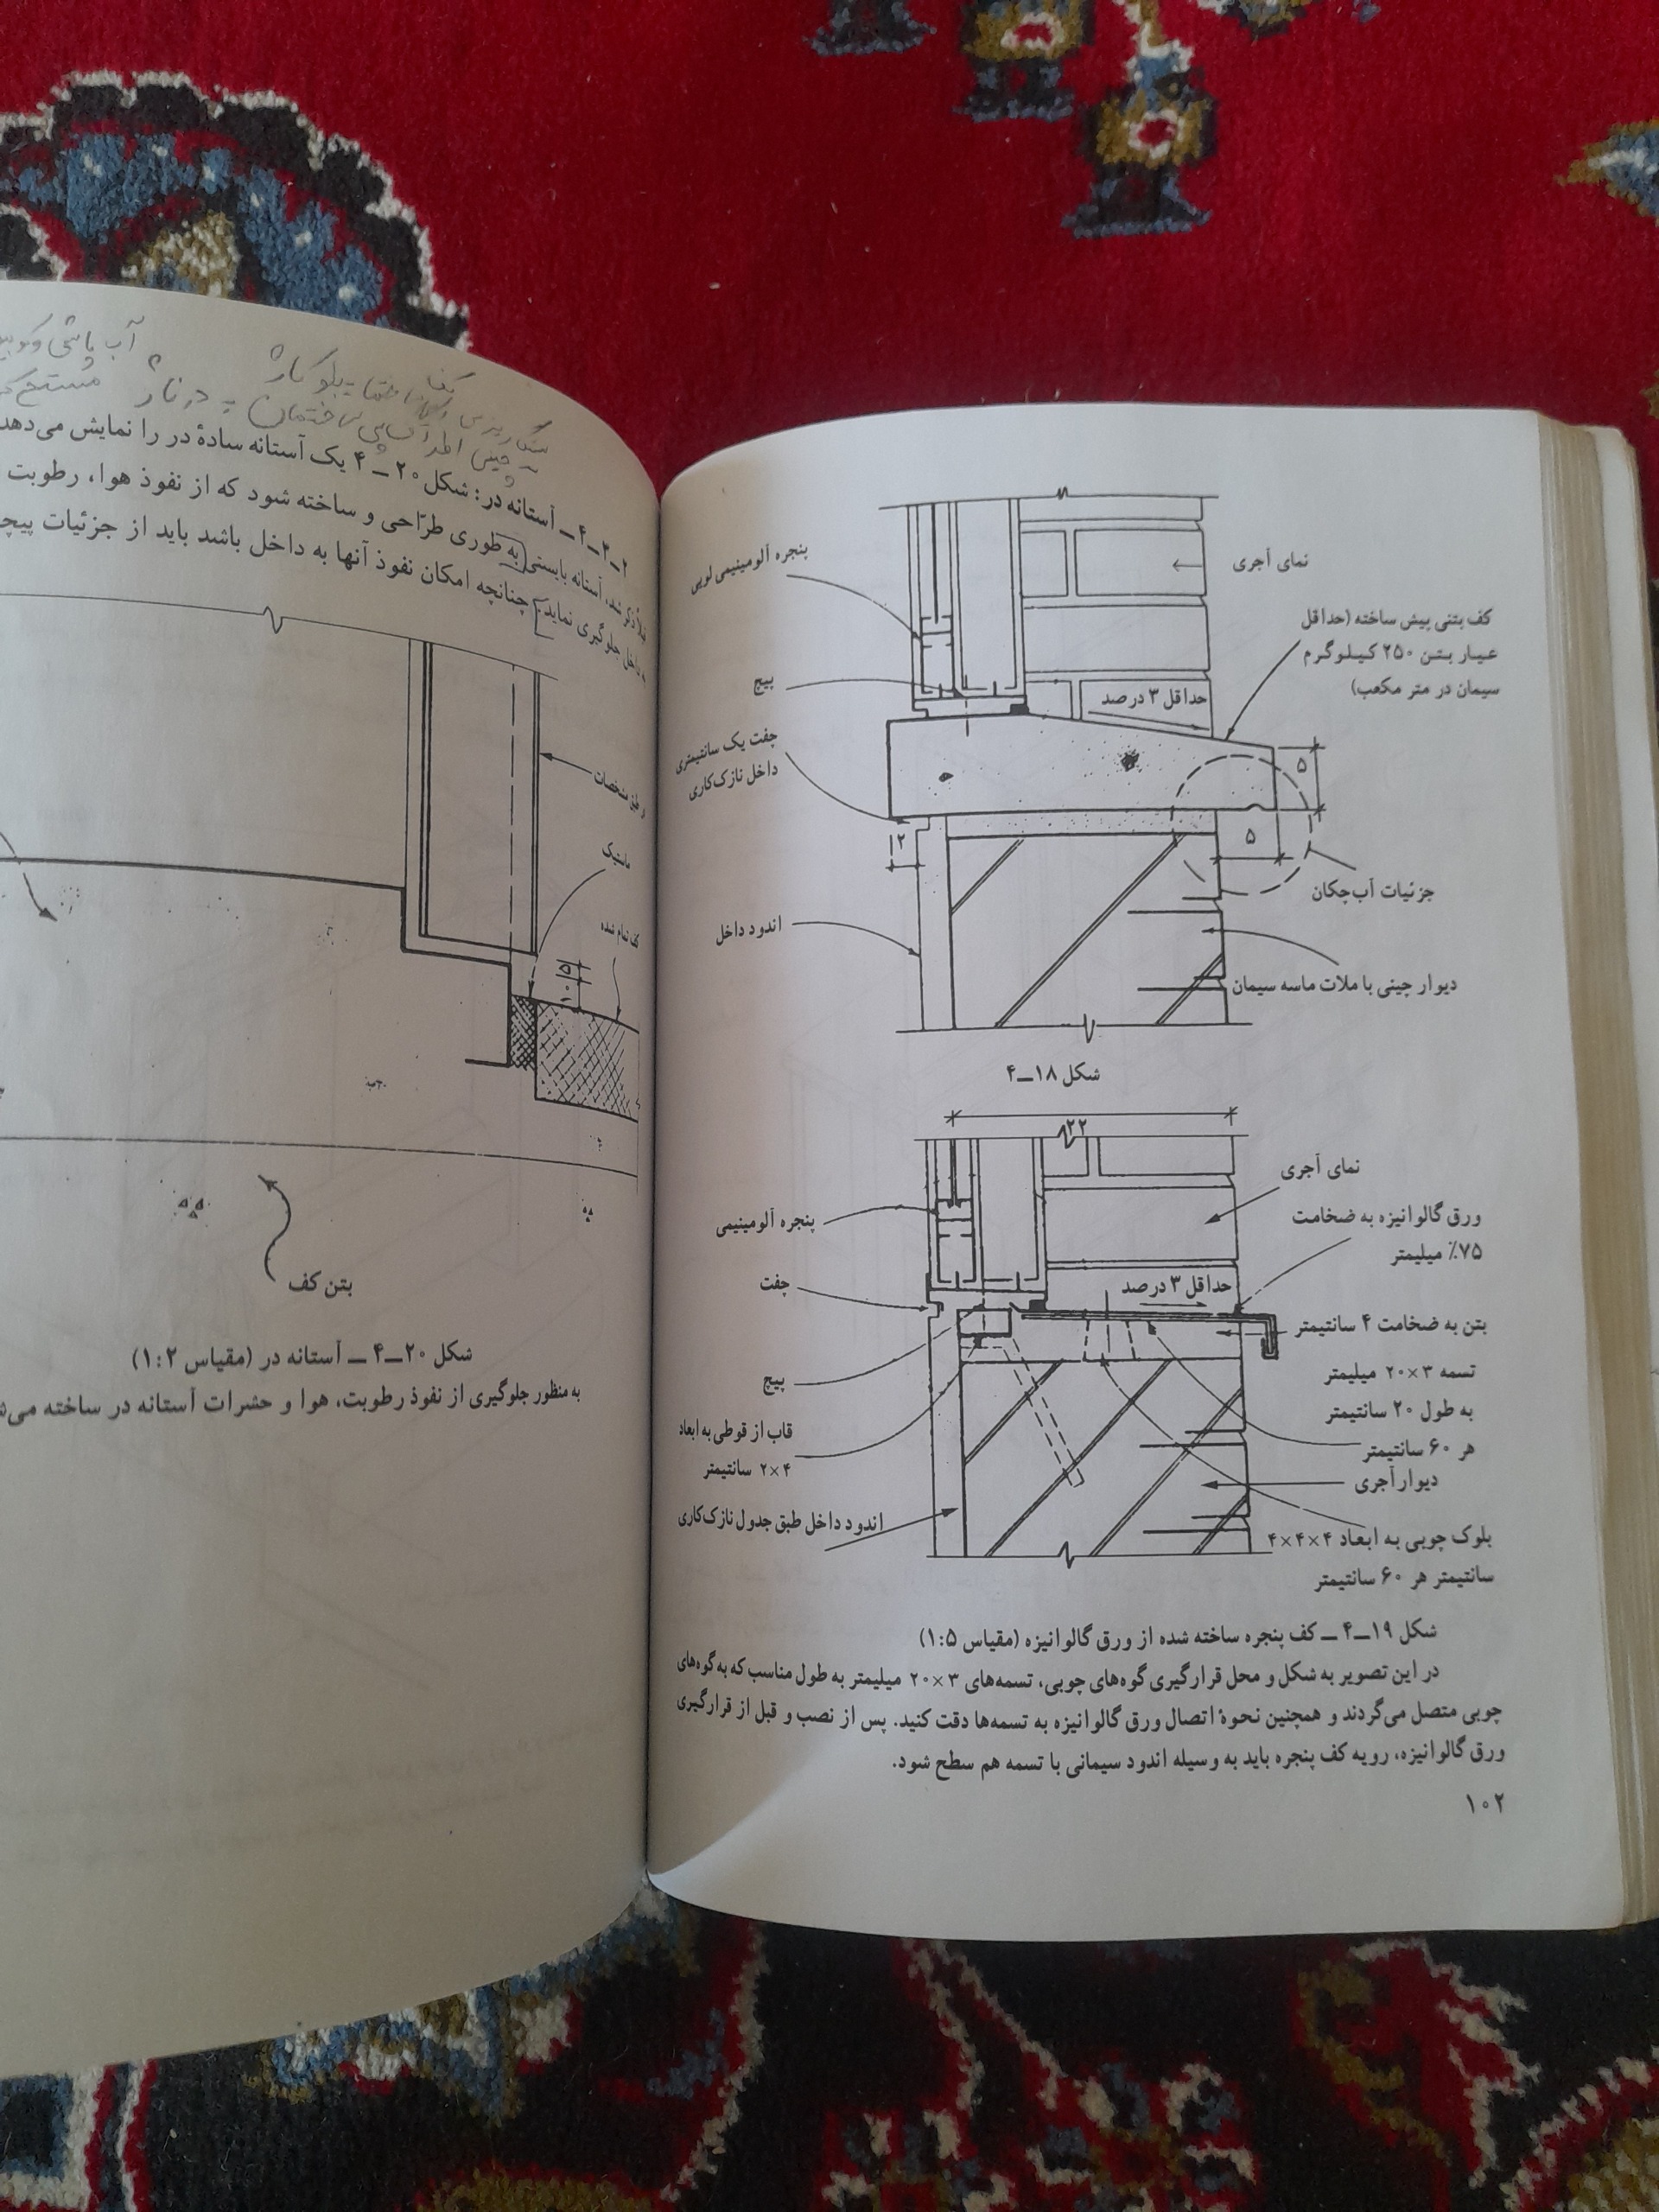 نمای آجری
پنجره آلومینیمی لولایی
کف بتنی پیش ساخته (حداقل
عیار بتن ۲۵۰ کیلوگرم
سیمان در متر مکعب)
پیچ
حداقل ۳ درصد
چفت یک سانتیمتری
داخل نازک‌کاری
۵
۱۲
۵
جزئیات آب‌چکان
اندود داخل
دیوار چینی با ملات ماسه سیمان
شکل ۱۸ــ۴
۲۲
نمای آجری
پنجره آلومینیمی
ورق گالوانیزه به ضخامت
٪۷۵ میلیمتر
چفت
حداقل ۳ درصد
بتن به ضخامت ۴ سانتیمتر
پیچ
تسمه ۳×۲۰ میلیمتر
به طول ۲۰ سانتیمتر
هر ۶۰ سانتیمتر
قاب از قوطی به ابعاد
۴×۲ سانتیمتر
دیوار آجری
اندود داخل طبق جدول نازک‌کاری
بلوک چوبی به ابعاد ۴×۴×۴
سانتیمتر هر ۶۰ سانتیمتر
شکل ۱۹ــ۴ ــ کف پنجره ساخته شده از ورق گالوانیزه (مقیاس ۱:۵)
در این تصویر به شکل و محل قرارگیری گوه‌های چوبی، تسمه‌های ۳×۲۰ میلیمتر به طول مناسب که به گوه‌های
چوبی متصل می‌گردند و همچنین نحوهٔ اتصال ورق گالوانیزه به تسمه‌ها دقت کنید. پس از نصب و قبل از قرارگیری
ورق گالوانیزه، رویه کف پنجره باید به وسیله اندود سیمانی با تسمه هم سطح شود.
۱۰۲
آب پاشی
۲ــ۳ــ۴ــ آستانه در: شکل ۲۰ــ۴ یک آستانه سادهٔ در را نمایش می‌دهد
قبلاً ذکر شد، آستانه بایستی به طوری طرّاحی و ساخته شود که از نفوذ هوا، رطوبت
به داخل جلوگیری نماید. چنانچه امکان نفوذ آنها به داخل باشد باید از جزئیات
طبق مشخصات
ماستیک
کف تمام شده
بتن کف
شکل ۲۰ــ۴ ــ آستانه در (مقیاس ۱:۲)
به منظور جلوگیری از نفوذ رطوبت، هوا و حشرات آستانه در ساخته